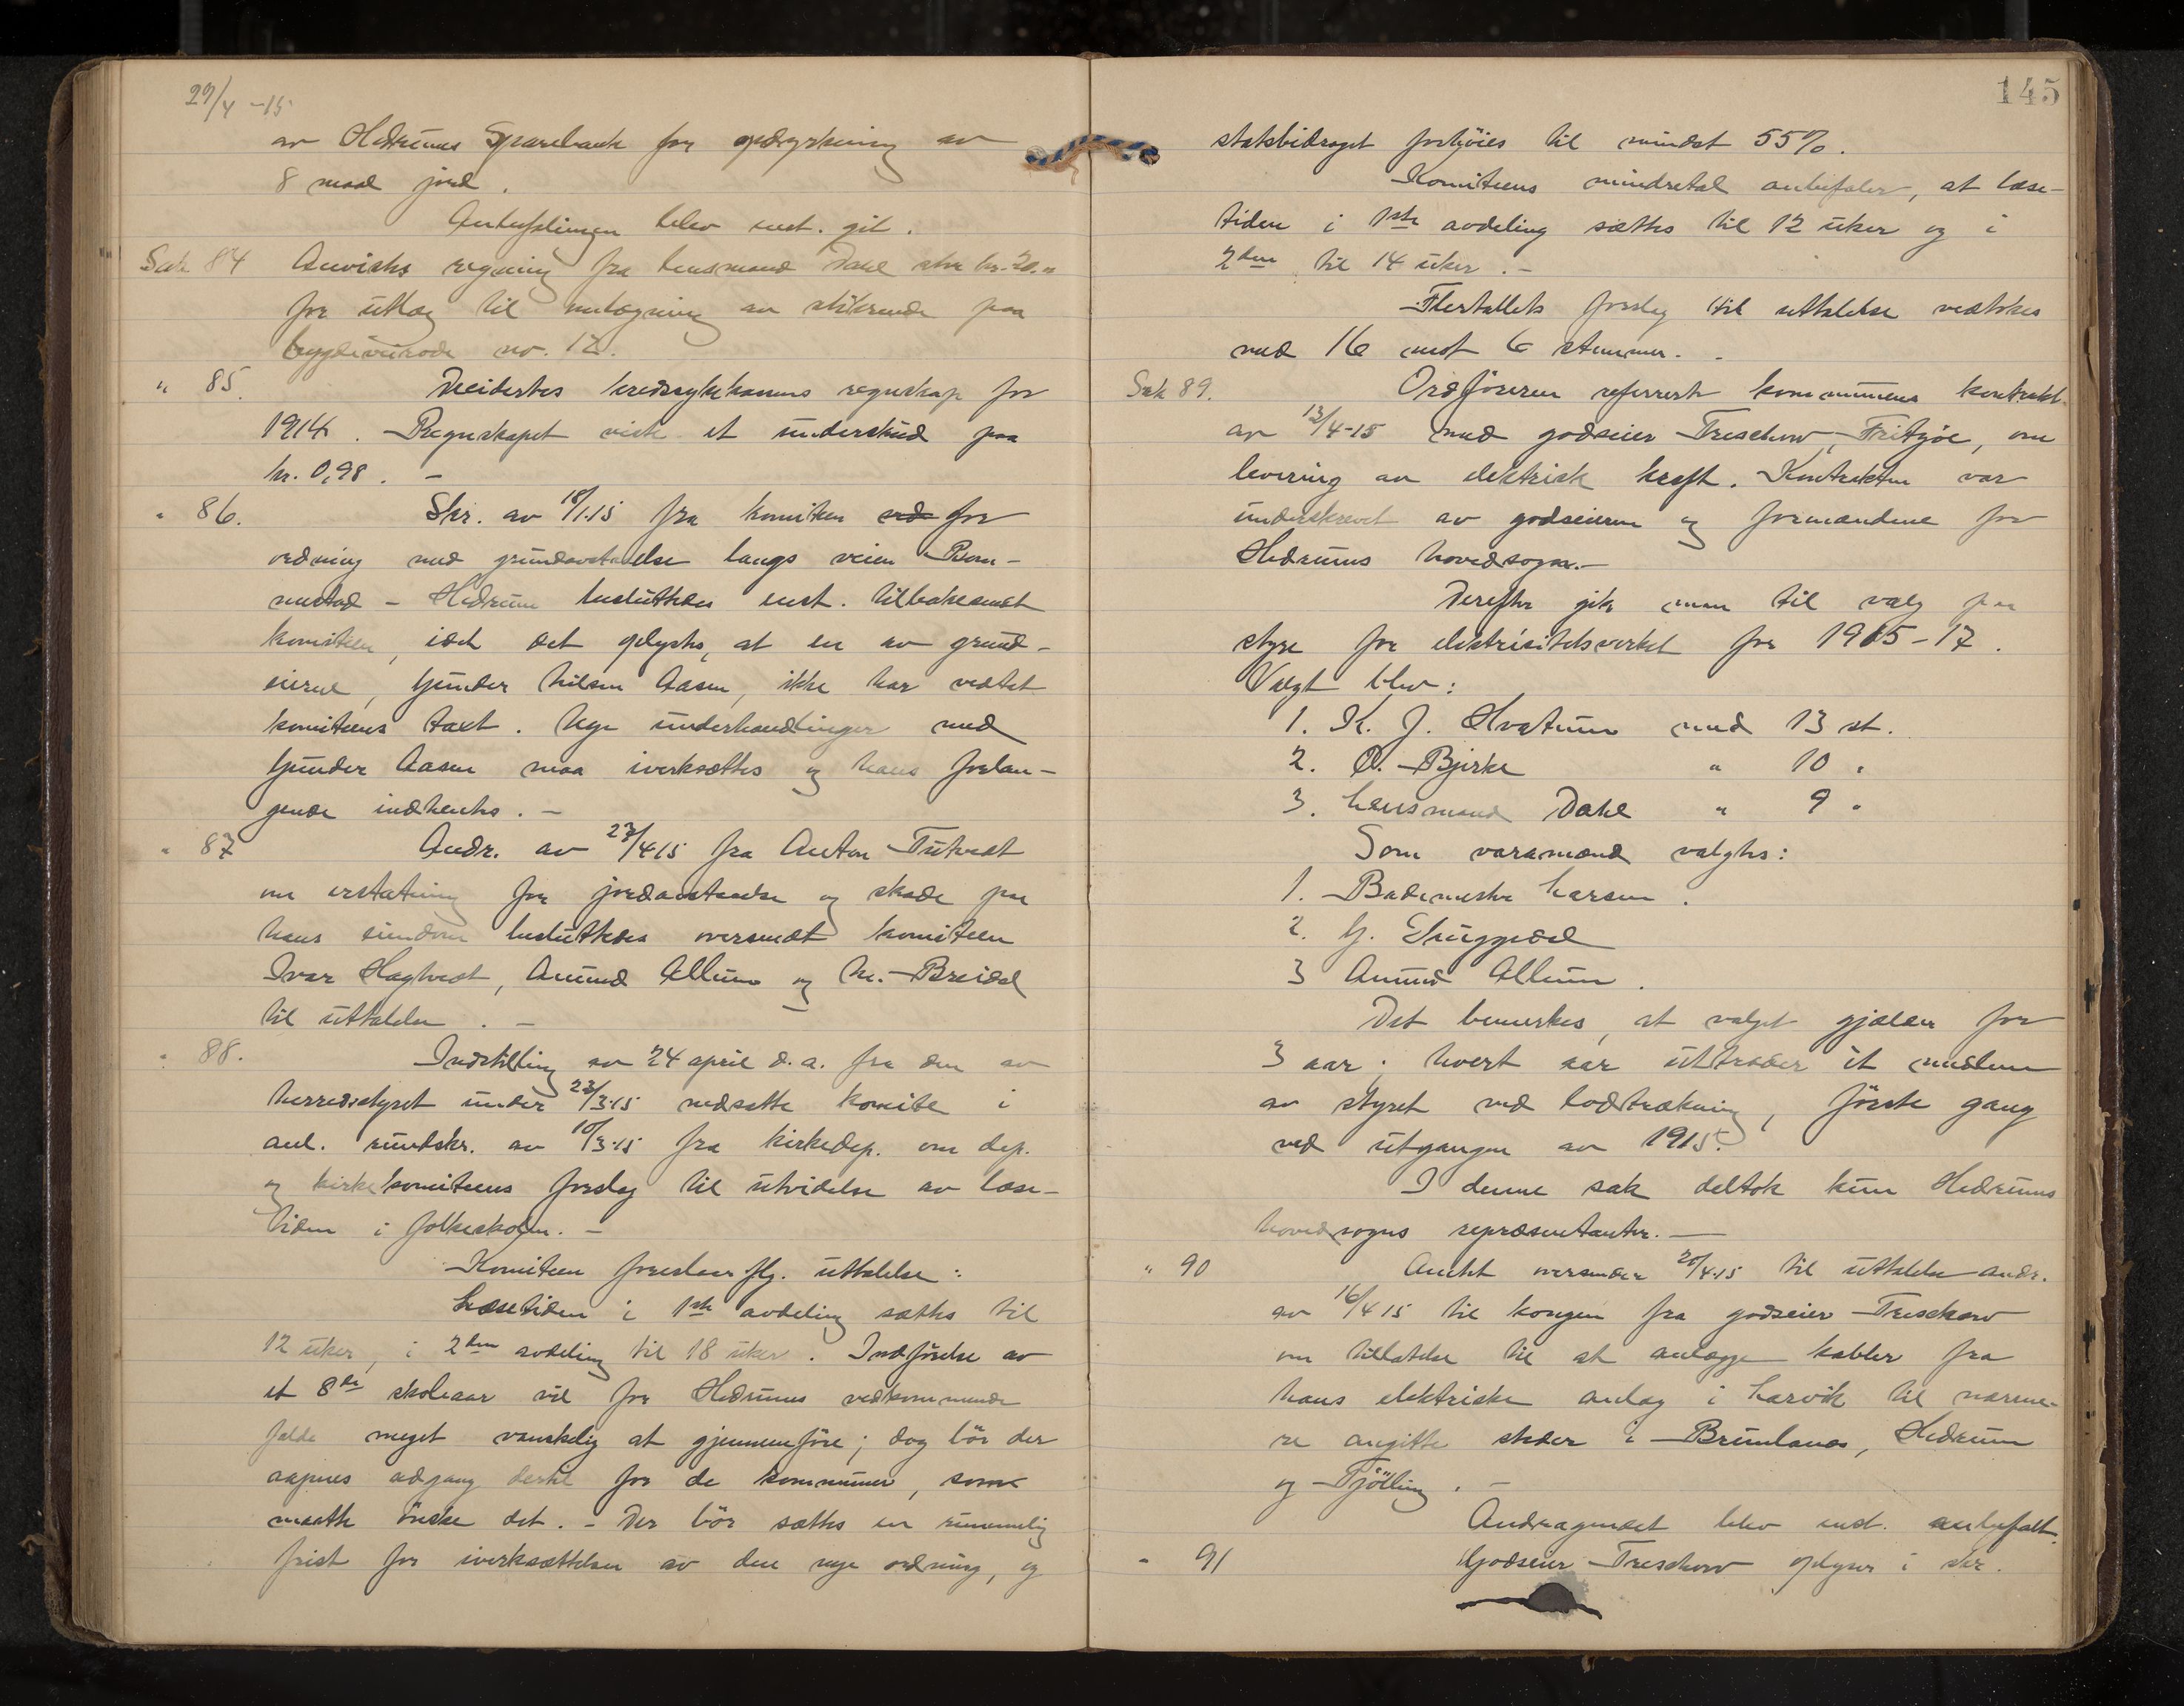 29/4 -15
av Hedrums Sparebank for opdyrkning av
8 maal jord.
Anbefalingen blev enst. git.
Sak 84 Anvistes regning fra lensmand Dahl stor kr. 20.00
for utlæg til nutagning av stikrende paa
bygdeveirode no. 12.
" 85. Decidertes kredssykekassens regnskap for
1914. Regnskapet viste et underskud paa
kr. 0,98. -
" 86. Skr. av 18/1.15 fra komiteen ved for
ordning med grundavstaaelse langs veien Bom-
mestad - Hedrum besluttedes enst. tilbakesendt
komiteen, idet det oplystes, at en av grund-
eierne, Gunder Nilsen Aasen, ikke har vedtat
komiteens taxt. Nye underhandlinger med
Gunder Aasen maa iverksættes og hans forlan-
gende indhentes. -
" 87 Andr. av 27/4 15 fra Anton Tutvedt
om erstatning for jordavstaaelse og skade paa
hans eiendom besluttedes oversendt komiteen
Ivar Hagtvedt, Amund Allum og N. Breidal
til uttalelse. -
" 88. Indstilling av 24 april d.a. fra den av
herredsstyret under 23/3.15 nedsatte komite i
anl. rundskr. av 10/3.15 fra kirkedep. om dep.
og kirkekomiteens forslag til utvidelse av læse-
tiden i folkeskolen. -
Komiteen foreslaar flg. uttalelse:
Læsetiden i 1ste avdeling sættes til
12 uker, i 2den avdeling til 18 uker. Indførelse av
et 8de skoleaar vil for Hedrums vedkommende
falde meget vanskelig at gjennemføre; dog bör der
aapnes adgang dertil for de kommuner, som
maatte önske det. - Der bör sættes en rummelig
frist for iverksættelsen av den nye ordning, og
145
statsbidraget forhöies til mindst 55%.
Komiteens mindretal anbefaler, at læse-
tiden i 1ste avdeling sættes til 12 uker og i
2den til 14 uker. -
Flertallets forslag til uttalelse vedtokes
med 16 mot 6 stemmer. -
Sak 89. Ordføreren refererte kommunens kontrakt
av 13/4-15 med godseier Treschow, Fritzøe, om
levering av elektrisk kraft. Kontrakten var
underskrevet av godseieren og formændene for
Hedrums hovedsogn. -
Derefter gik man til valg paa
styre for elektrisitetsverket for 1915-17.
Valgt blev:
1. K. J. Hvatum med 13 st.
2. O. Bjerke " 10 "
3. Lensmand Dahl " 9 "
Som varamænd valgtes:
1. Bademester Larsen.
2. G. Skuggedal
3 Amund Allum.
Det bemerkes, at valget gjælder for
3 aar; hvert aar uttræder et medlem
av styret ved lodtrækning, förste gang
ved utgangen av 1915.
I denne sak deltok kun Hedrums
hovedsogns repræsentanter. -
" 90 Amtet oversender 20/4.15 til uttalelse andr.
av 16/4 15 til kongen fra godseier Treschow
om tillatelse til at anlægge kabler fra
hans elektriske anlæg i Larvik til nærme-
re angitte steder i Brunlanes, Hedrum
og Tjölling. -
Andragendet blev enst. anbefalt.
" 91 Godseier Treschow oplyser i skr.